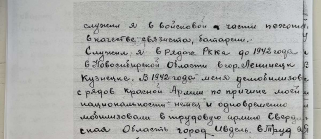 служил я в войсковой части
в качестве связиста, батареи.
Служил я в Рядах РККА до 1942 года
в Новосибирской Области в гор. Ленинск
Кузнецке. В 1942 года меня демобилизова
с рядов Красной Армии по причине моей
национальности немец и одновременно
мобилизовали в трудовую армию Сверд
ская Область город Ивдель. в Труд